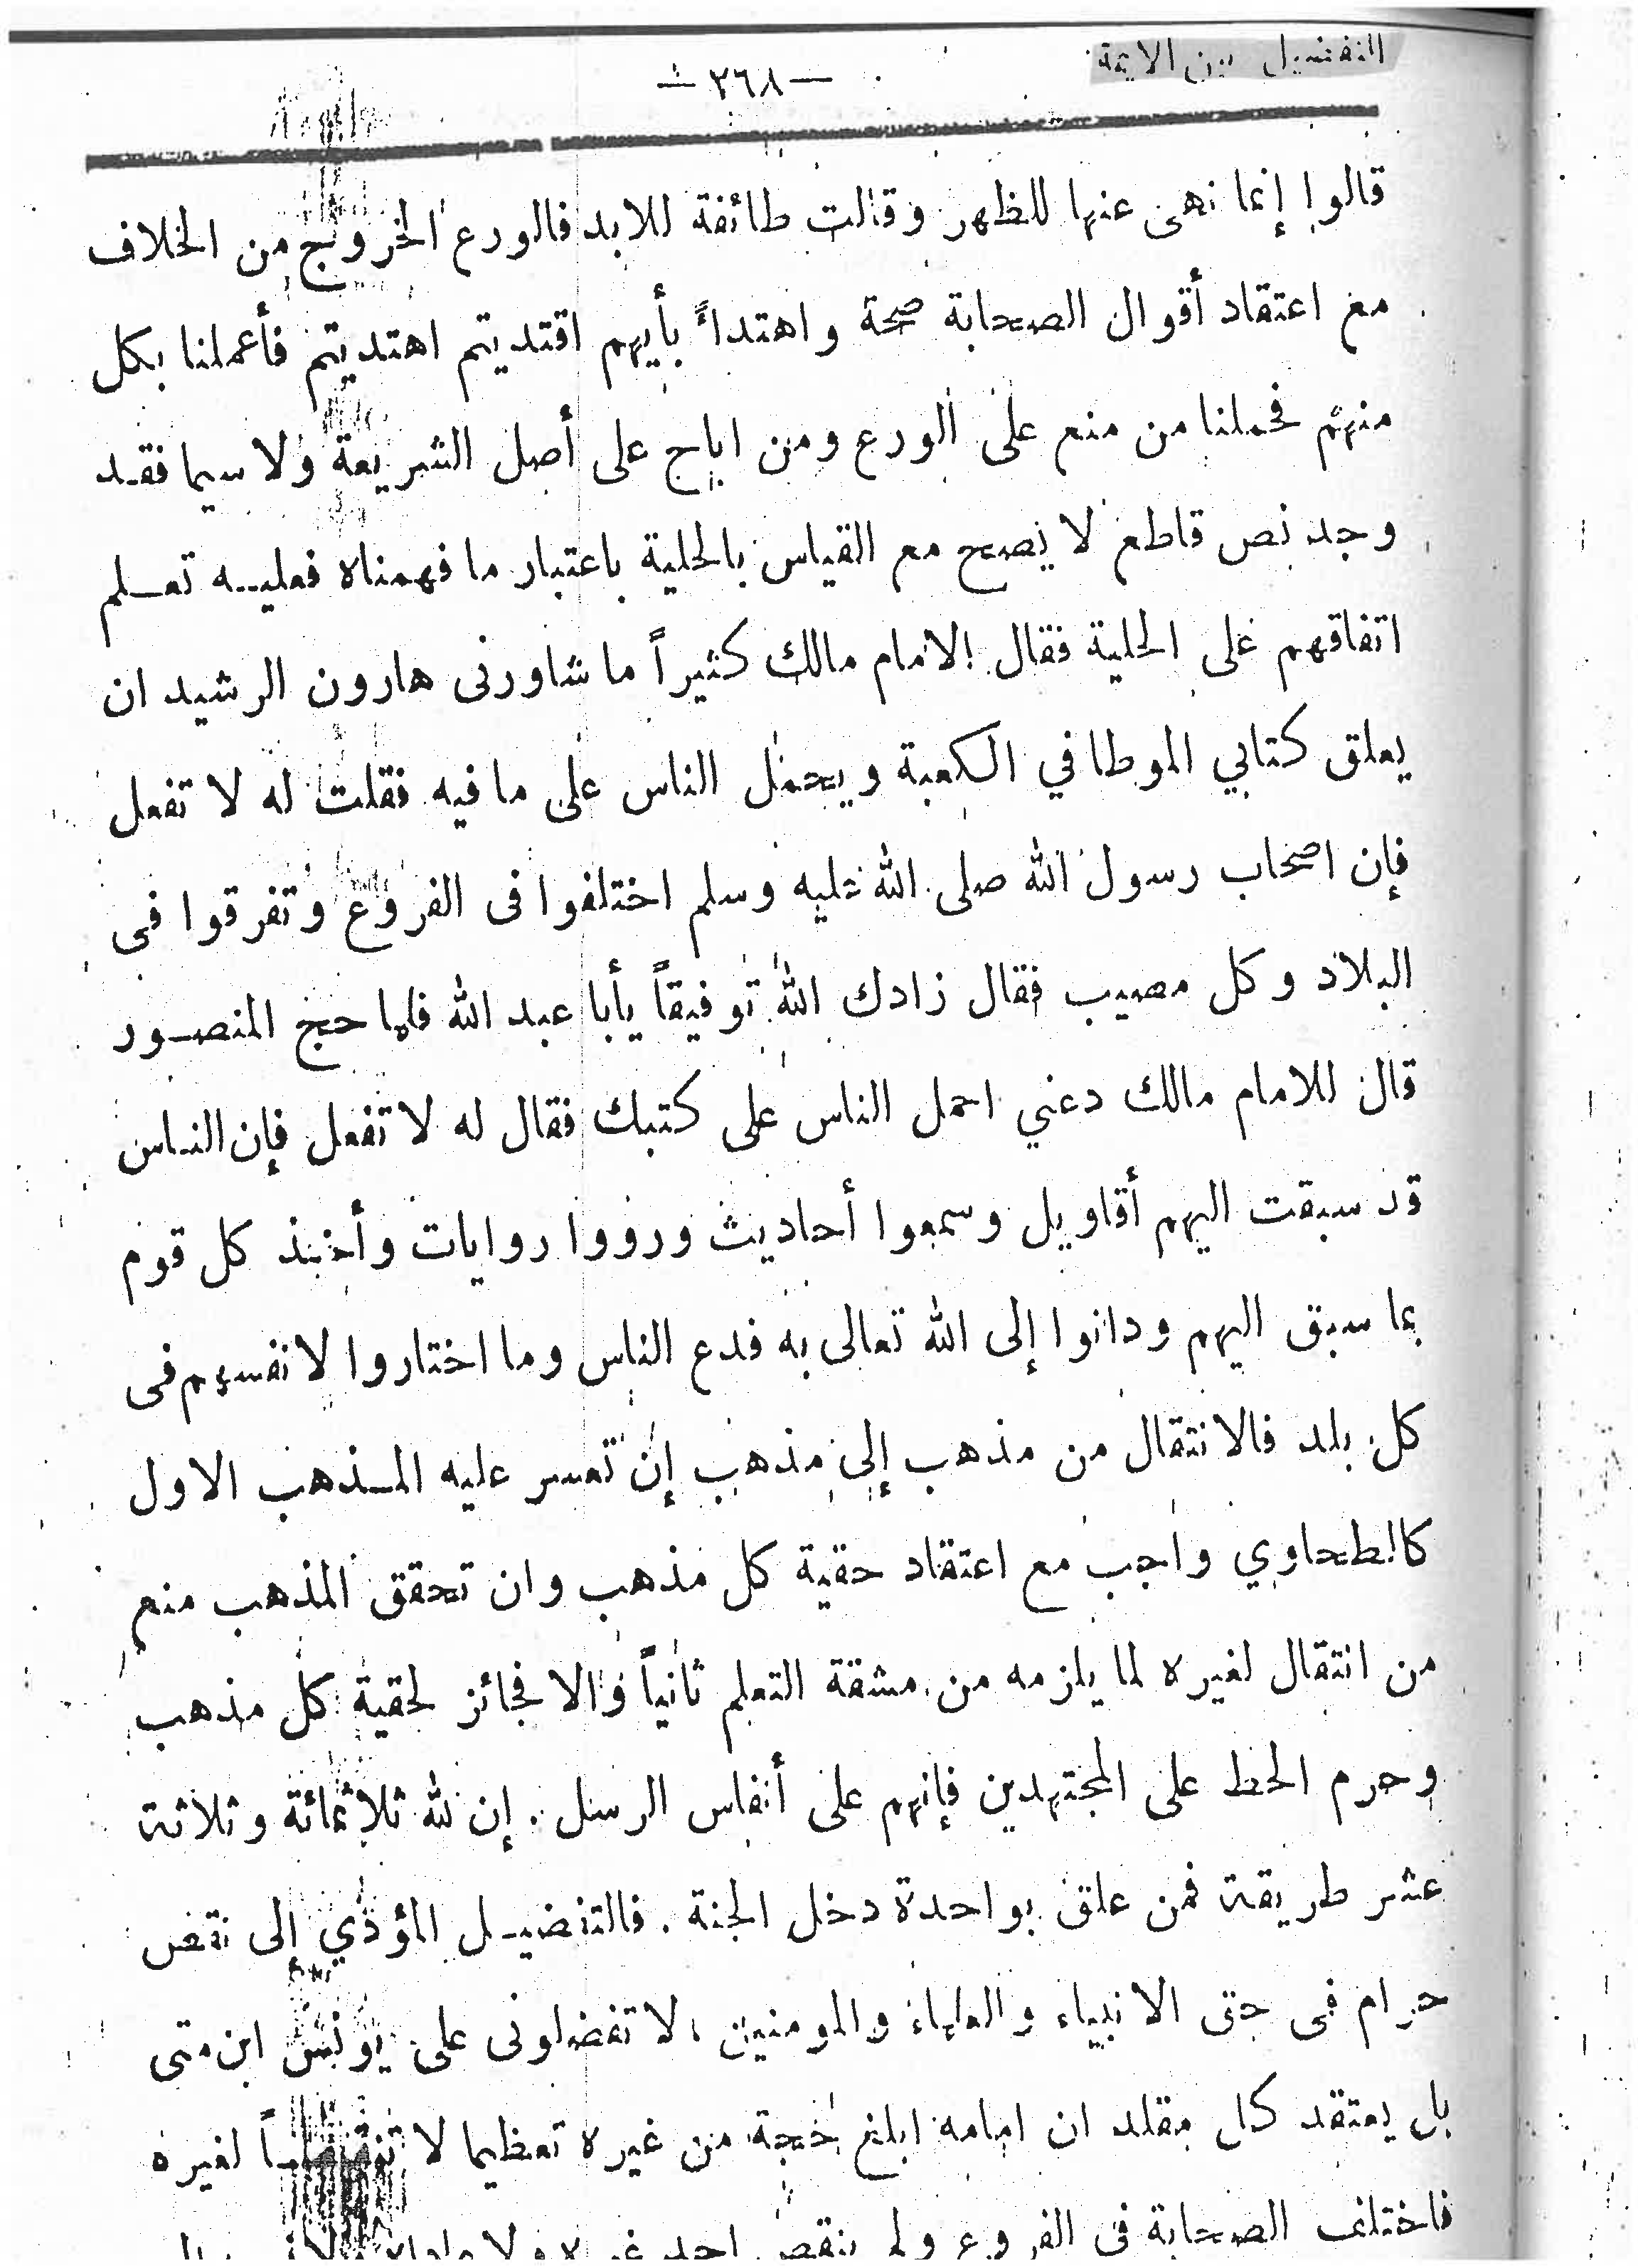 التفضيل بين الائمة
— ٢٦٨ —
قالوا إنما نهى عنها للظهر وقالت طائفة للابد فالورع الخروج من الخلاف
مع اعتقاد أقوال الصحابة صحة واهتداءً بأيهم اقتديتم اهتديتم فأعملنا بكل
منهم فحملنا من منع على الورع ومن اباح على أصل الشريعة ولا سيما فقد
وجد نص قاطع لا يصح مع القياس بالحلية باعتبار ما فهمناه فعليه تعلم
اتفاقهم على الحلية فقال الامام مالك كثيراً ما شاورنى هارون الرشيد ان
يعلق كتابي الموطا في الكعبة ويحمل الناس على ما فيه فقلت له لا تفعل
فإن اصحاب رسول الله صلى الله عليه وسلم اختلفوا فى الفروع وتفرقوا فى
البلاد وكل مصيب فقال زادك الله توفيقاً يأبا عبد الله فلما حج المنصور
قال للامام مالك دعني احمل الناس على كتبك فقال له لا تفعل فإن الناس
قد سبقت اليهم أقاويل وسمعوا أحاديث ورووا روايات وأخذ كل قوم
بما سبق اليهم ودانوا إلى الله تعالى به فدع الناس وما اختاروا لانفسهم فى
كل بلد فالانتقال من مذهب إلى مذهب إن تعسر عليه المذهب الاول
كالطحاوي واجب مع اعتقاد حقية كل مذهب وان تحقق المذهب منع
من انتقال لغيره لما يلزمه من مشقة التعلم ثانياً والا فجائز لحقية كل مذهب
وحرم الحط على المجتهدين فإنهم على أنفاس الرسل . إن لله ثلاثمائة وثلاثة
عشر طريقة فمن علق بواحدة دخل الجنة . فالتفضيل المؤذي إلى نقص
حرام فى حق الانبياء والعلماء والمومنين ، لا تفضلونى على يونس ابن متى
بل يعتقد كل مقلد ان امامه ابلغ حجة من غيره تعظيما لا لغيره
فاختلف الصحابة فى الفروع ولم ينقص احد